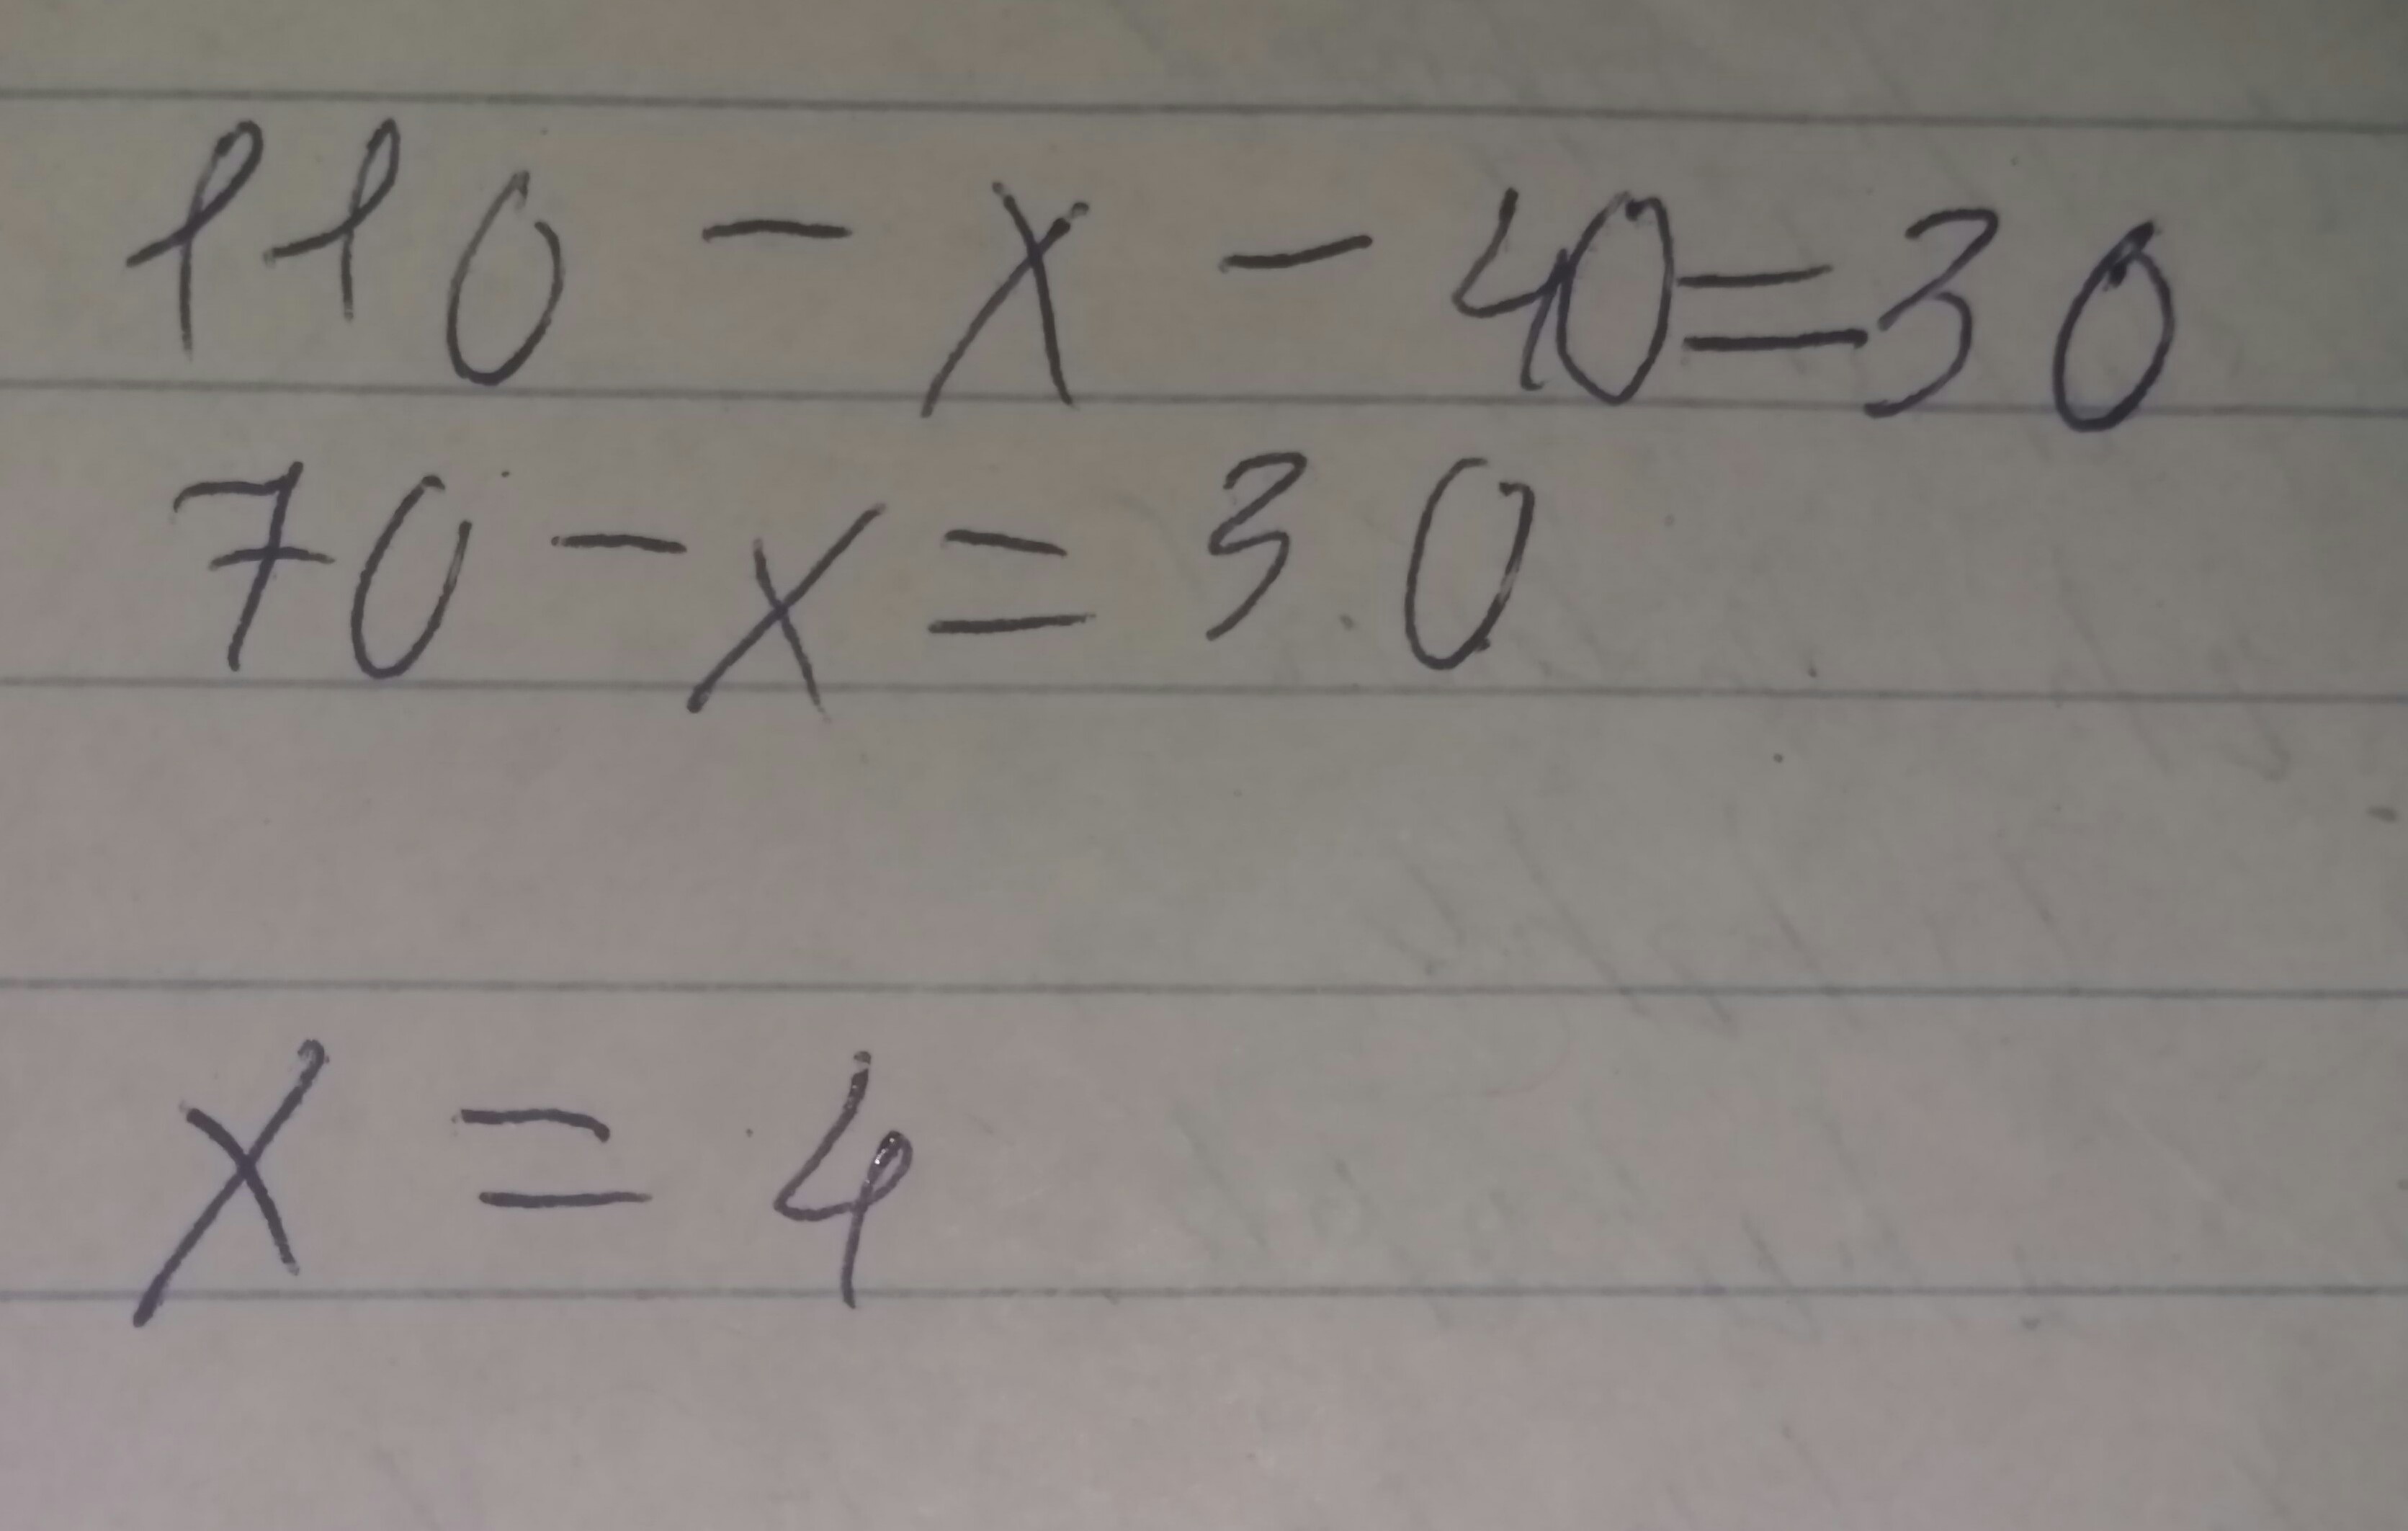 110 - x - 40 = 30
70 - x = 30
x = 4